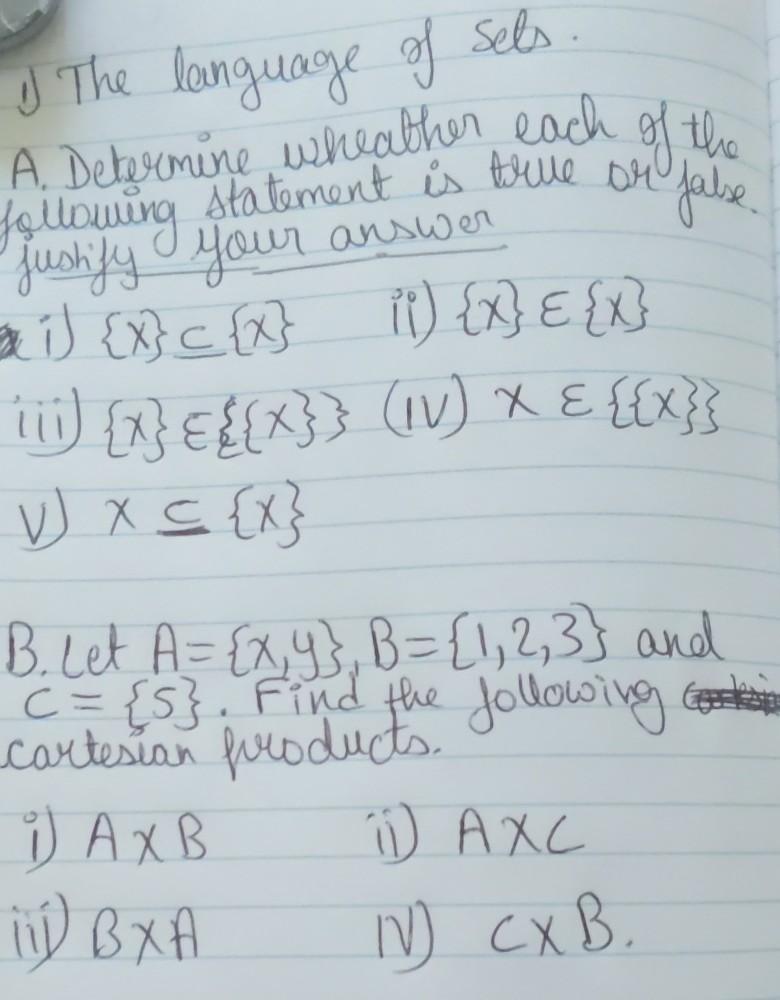 1) The language of Sets.
A. Determine wheather each of the
following statement is true or false.
justify your answer
i) {x} ⊆ {x} ii) {x} ∈ {x}
iii) {x} ∈ {{x}} (IV) x ∈ {{x}}
V) x ⊆ {x}
B. Let A = {x,y}, B = {1,2,3} and
C = {5}. Find the following
cartesian products.
i) A x B ii) A x C
iii) B x A IV) C x B.